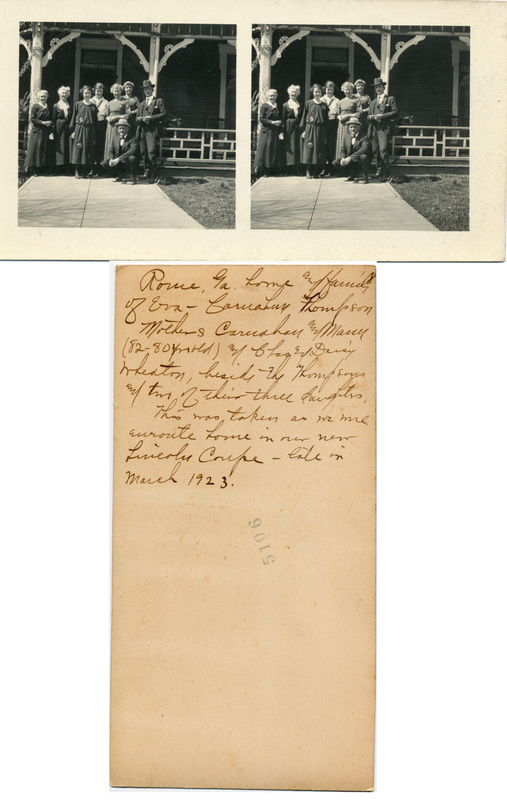 Rome, Ga. home and family
of Eva - Carnahan Thompson
Mothers Carnahan and Mann
(82-80 yrs old) and Chas and Daisy
Wheaton, beside the Thompsons
and two of their three daughters.
This was taken as we were
enroute home in our new
Lincoln Coupe - late in
March 1923.
5106